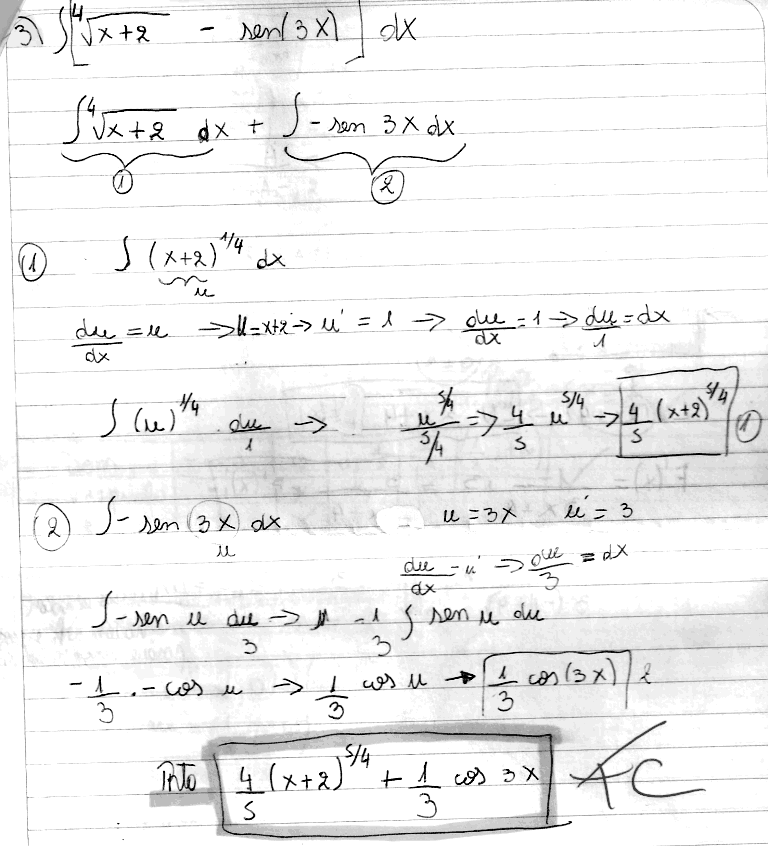 3) ∫[⁴√(x+2) - sen(3x)] dx
∫ ⁴√(x+2) dx + ∫ - sen 3x dx
① ②
① ∫ (x+2)^1/4 dx
u
du/dx = u → u = x+2 → u' = 1 → du/dx = 1 → du/1 = dx
∫ (u)^1/4 du/1 → u^5/4 / 5/4 => 4/5 u^5/4 → 4/5 (x+2)^5/4 ①
② ∫ - sen (3x) dx u = 3x u' = 3
u
du/dx = u' → du/3 = dx
∫ - sen u du/3 → - 1/3 ∫ sen u du
- 1/3 . - cos u → 1/3 cos u → 1/3 cos (3x) 2
4/5 (x+2)^5/4 + 1/3 cos 3x + C